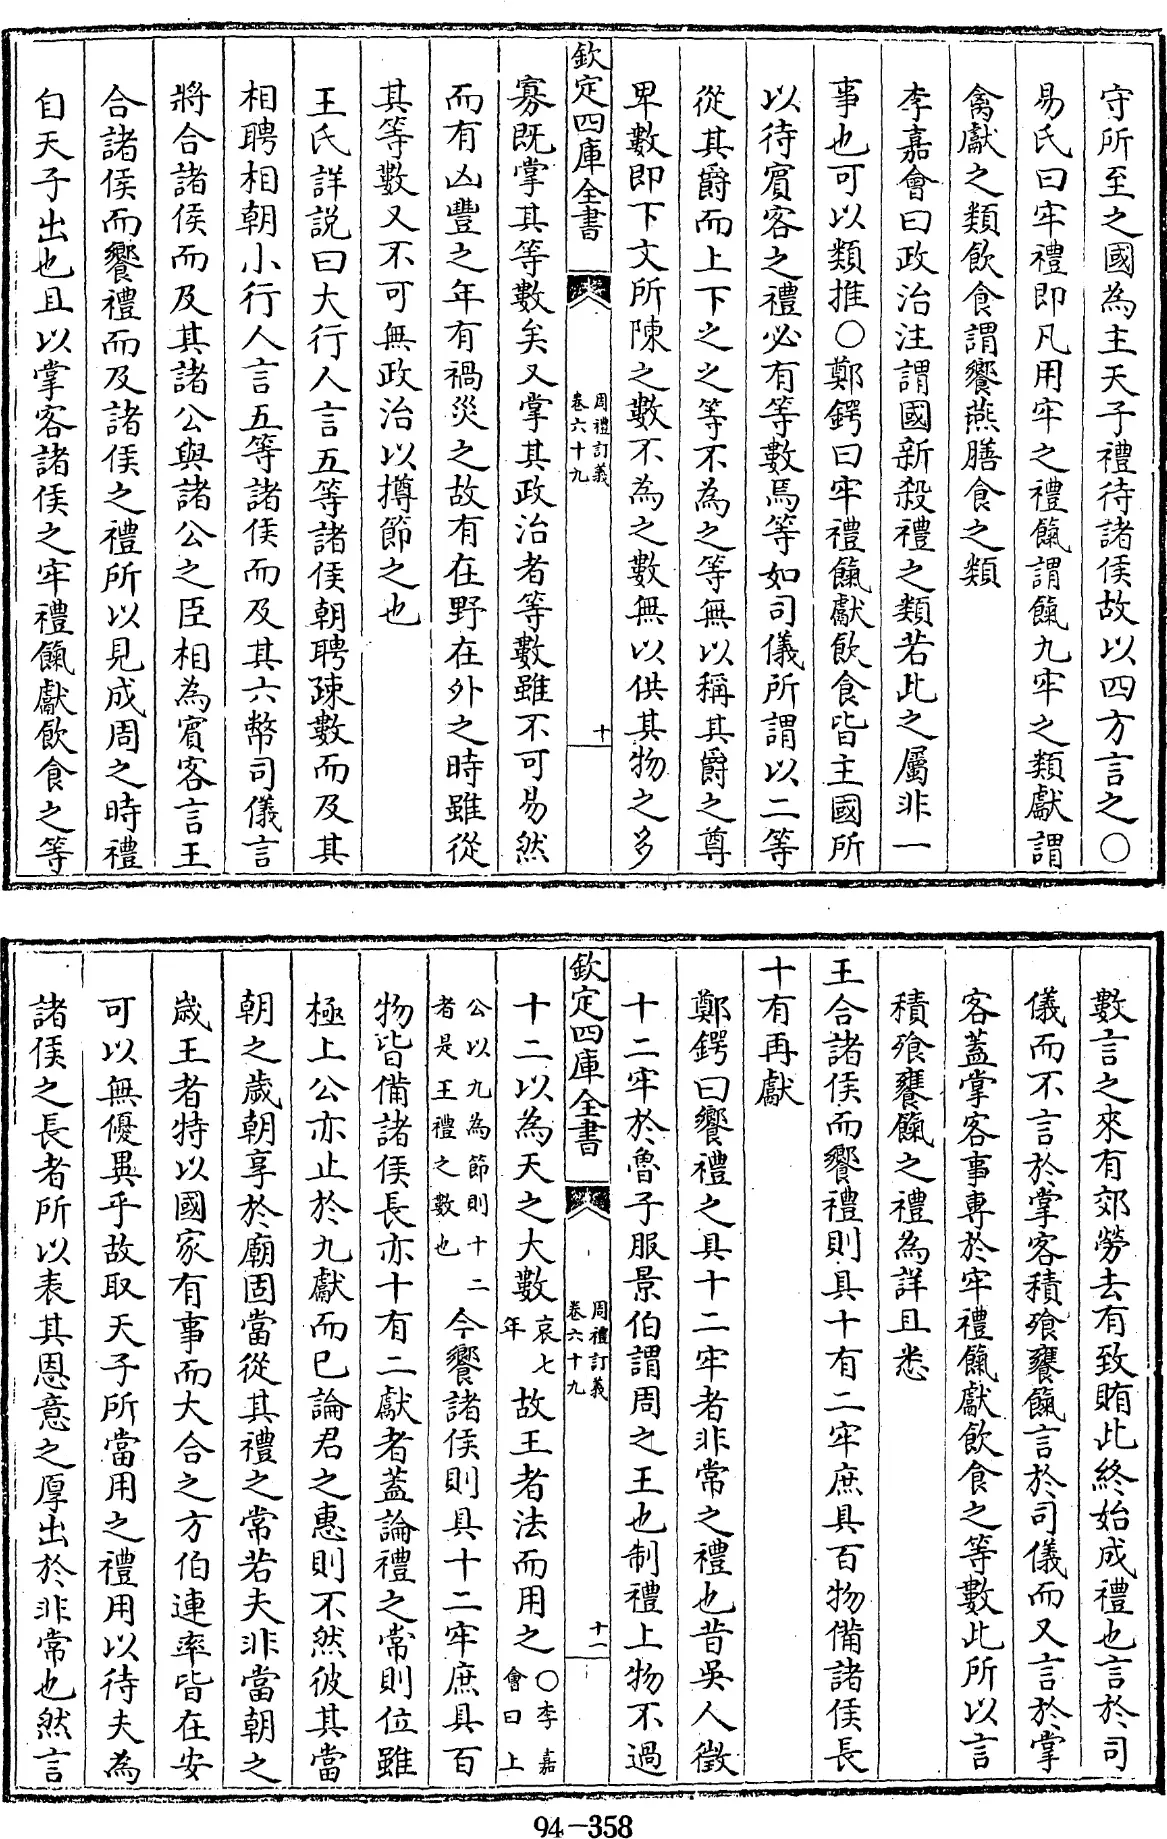 守所至之國為主天子禮待諸侯故以四方言之○
易氏曰牢禮即凡用牢之禮餼謂餼九牢之類獻謂
禽獻之類飲食謂饗燕膳食之類
李嘉會曰政治注謂國新殺禮之類若此之屬非一
事也可以類推○鄭鍔曰牢禮餼獻飲食皆主國所
以待賓客之禮必有等數焉等如司儀所謂以二等
從其爵而上下之之等不為之等無以稱其爵之尊
卑數即下文所陳之數不為之數無以供其物之多
欽定四庫全書
周禮訂義
卷六十九
十
寡既掌其等數矣又掌其政治者等數雖不可易然
而有凶豐之年有禍災之故有在野在外之時雖從
其等數又不可無政治以撙節之也
王氏詳説曰大行人言五等諸侯朝聘疎數而及其
相聘相朝小行人言五等諸侯而及其六幣司儀言
將合諸侯而及其諸公與諸公之臣相為賓客言王
合諸侯而饗禮而及諸侯之禮所以見成周之時禮
自天子出也且以掌客諸侯之牢禮餼獻飲食之等
數言之來有郊勞去有致賄此終始成禮也言於司
儀而不言於掌客積飱饔餼言於司儀而又言於掌
客蓋掌客事專於牢禮餼獻飲食之等數此所以言
積飱饔餼之禮為詳且悉
王合諸侯而饗禮則具十有二牢庶具百物備諸侯長
十有再獻
鄭鍔曰饗禮之具十二牢者非常之禮也昔吳人徵
十二牢於魯子服景伯謂周之王也制禮上物不過
欽定四庫全書
周禮訂義
卷六十九
十一
十二以為天之大數哀七年故王者法而用之○李嘉會曰上
公以九為節則十二者是王禮之數也今饗諸侯則具十二牢庶具百
物皆備諸侯長亦十有二獻者蓋論禮之常則位雖
極上公亦止於九獻而已論君之惠則不然彼其當
朝之歲朝享於廟固當從其禮之常若夫非當朝之
歲王者特以國家有事而大合之方伯連率皆在安
可以無優異乎故取天子所當用之禮用以待夫為
諸侯之長者所以表其恩意之厚出於非常也然言
94-358